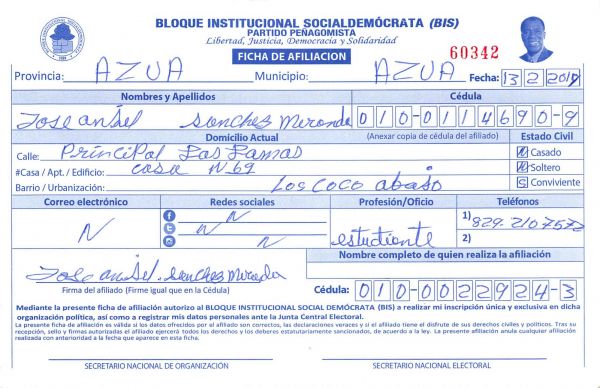 BLOQUE INSTITUCIONAL SOCIALDEMÓCRATA (BIS)
PARTIDO PEÑAGOMISTA
Libertad, Justicia, Democracia y Solidaridad
FICHA DE AFILIACION
60342
Provincia: AZUA Municipio: AZUA Fecha: 13 2 2019
Nombres y Apellidos Cédula
Jose anjel Sanchez Miranda 010-0114690-9
Domicilio Actual (Anexar copia de cédula del afiliado) Estado Civil
Calle: Principal Las Lamas Casado
#Casa / Apt. / Edificio: casa N. 69 Soltero
Barrio / Urbanización: Los coco abajo S Conviviente
Correo electrónico Redes sociales Profesión/Oficio Teléfonos
N N N estudiente 1) 829.210757
2)
Nombre completo de quien realiza la afiliación
Jose anjel. sanchez miranda
Firma del afiliado (Firme igual que en la Cédula) Cédula: 010-0022924-3
Mediante la presente ficha de afiliación autorizo al BLOQUE INSTITUCIONAL SOCIAL DEMÓCRATA (BIS) a realizar mi inscripción única y exclusiva en dicha
organización política, así como a registrar mis datos personales ante la Junta Central Electoral.
La presente ficha de afiliación es válida si los datos ofrecidos por el afiliado son correctos, las declaraciones veraces y si el afiliado tiene el disfrute de sus derechos civiles y políticos. Tras su
recepción, sello y firmas autorizadas el afiliado ejercerá todos los derechos y los deberes estatutariamente sancionados, de acuerdo a la ley. La presente afiliación anula cualquier afiliación
realizada con anterioridad a la fecha que aparece en esta ficha.
SECRETARIO NACIONAL DE ORGANIZACIÓN SECRETARIO NACIONAL ELECTORAL